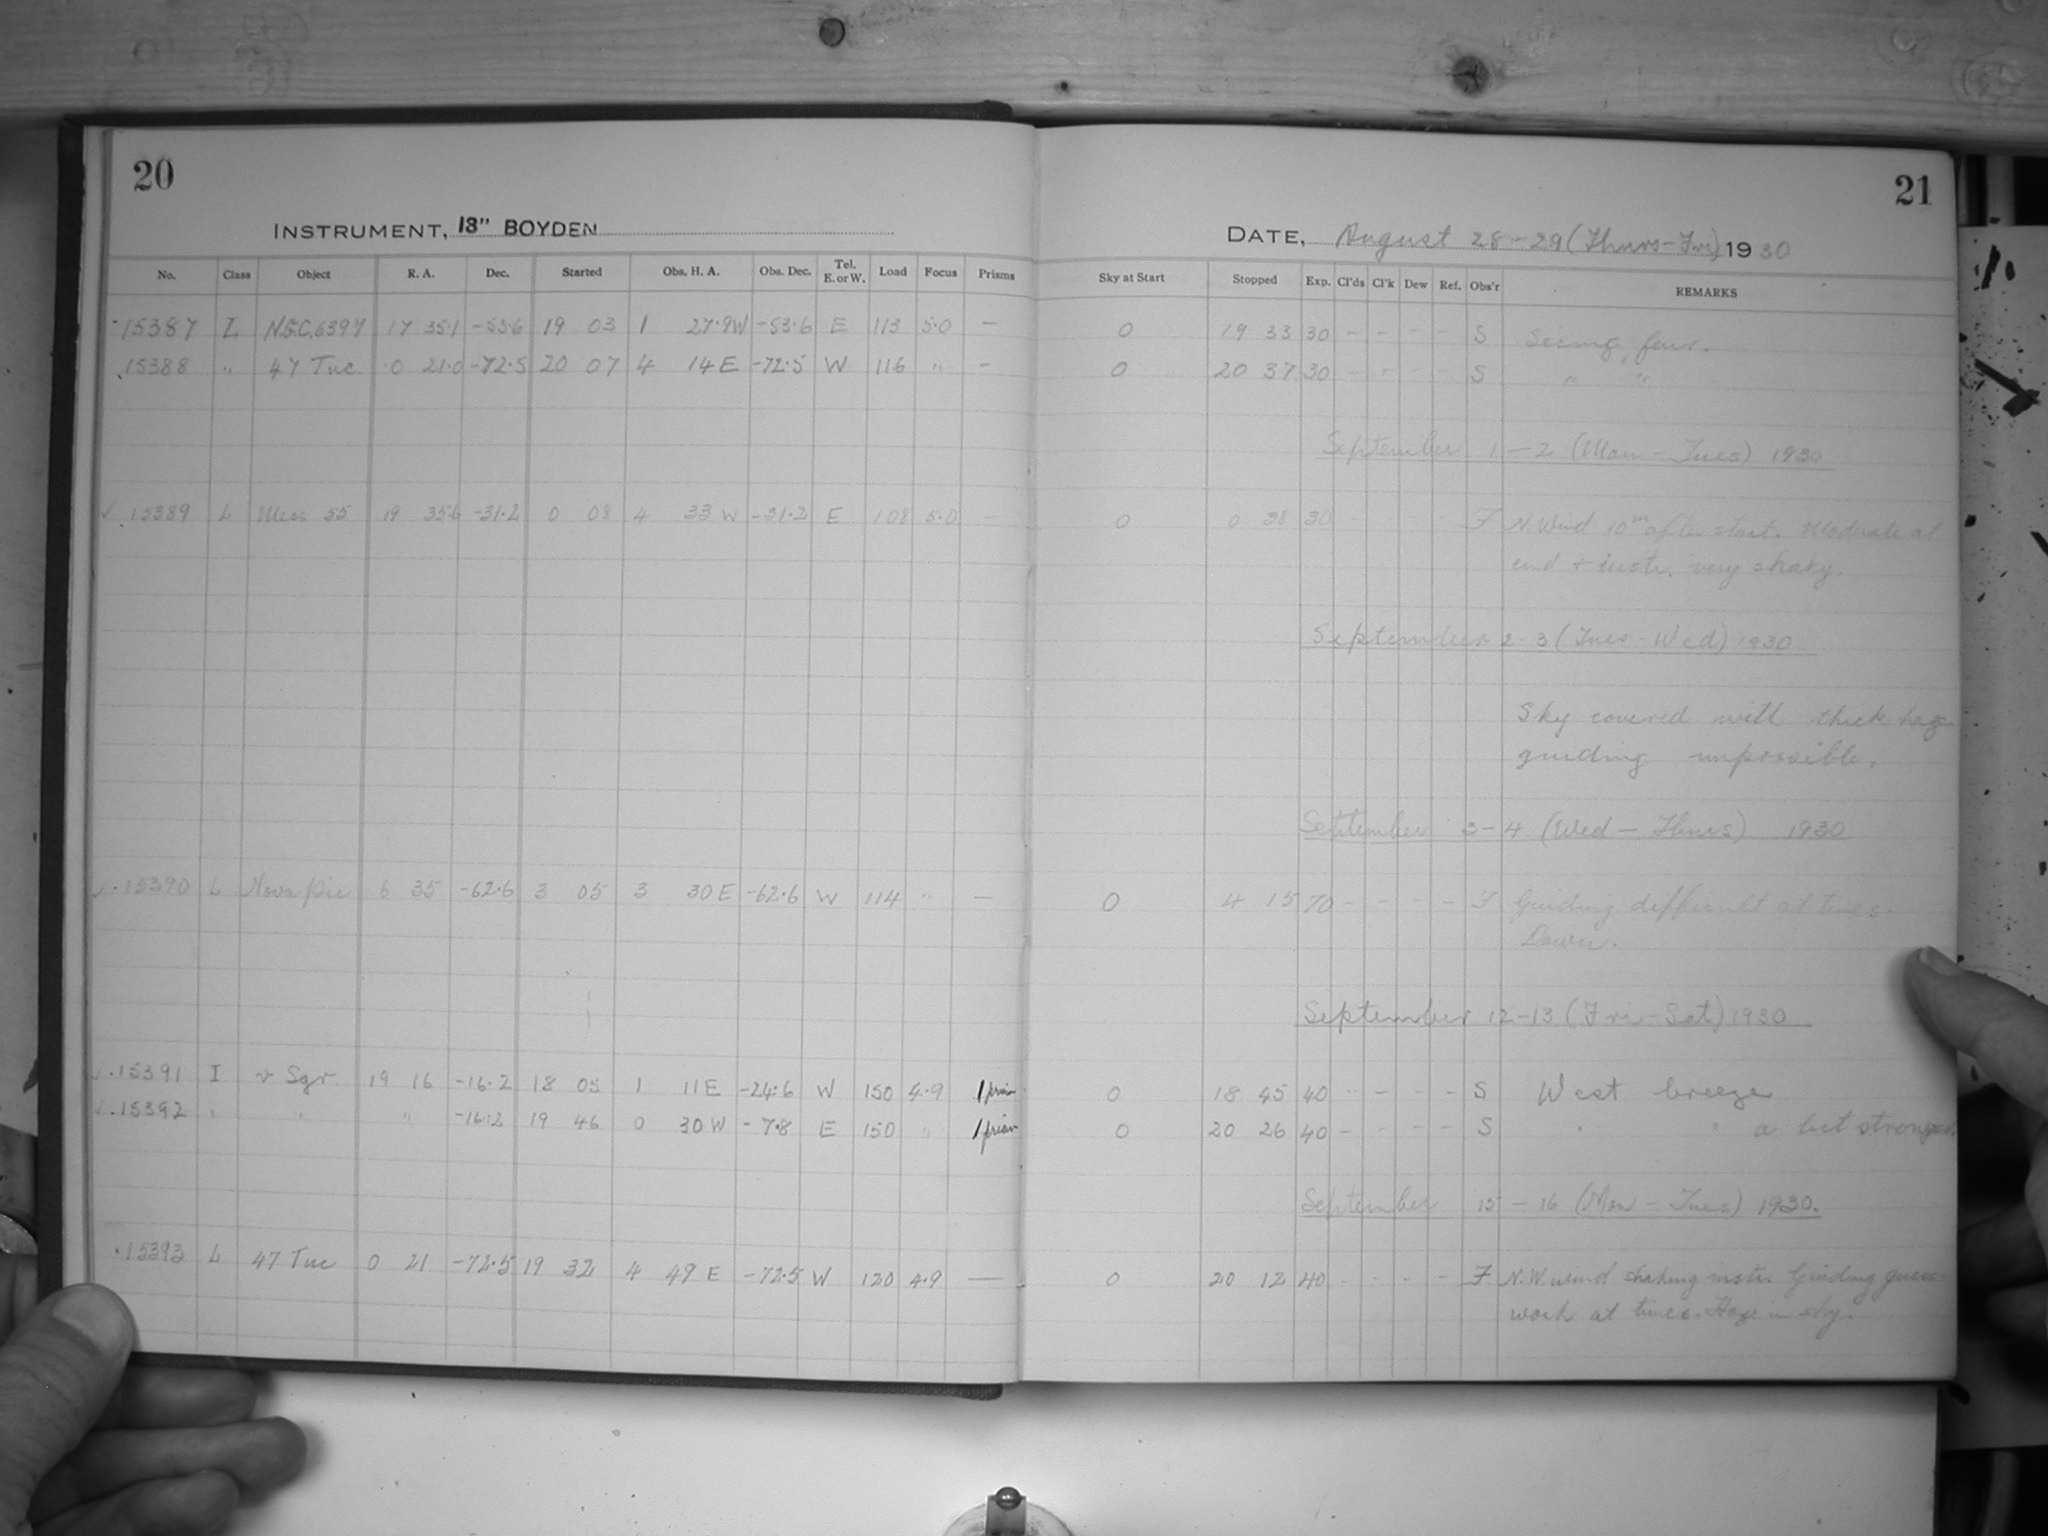 20
INSTRUMENT, 13" BOYDEN
No. Class Object R. A. Dec. Started Obs. H. A. Obs. Dec. Tel. E. or W. Load Focus Prisms
15387 L N.G.C. 6397 17 35.1 -53.6 19 03 1 27.9W -53.6 E 113 5.0 —
15388 " 47 Tuc 0 21.0 -72.5 20 07 4 14 E -72.5 W 116 " —
✓ 15389 L Mess 55 19 35.6 -31.2 0 08 4 33 W -31.2 E 108 5.0 —
✓ 15390 L Nova Pic 6 35 -62.6 3 05 3 30 E -62.6 W 114 " —
✓ 15391 I v Sgr. 19 16 -16.2 18 05 1 11 E -24.6 W 150 4.9 1 prism
✓ 15392 " " " -16.2 19 46 0 30 W -7.8 E 150 " 1 prism
15393 L 47 Tuc 0 21 -72.5 19 32 4 49 E -72.5 W 120 4.9 —
21
DATE, August 28-29 (Thurs-Fri) 1930
Sky at Start Stopped Exp. Cl'ds Cl'k Dew Ref. Obs'r REMARKS
0 19 33 30 - - - - S Seeing, fair.
0 20 37 30 - - - - S " "
September 1-2 (Mon - Tues) 1930
0 0 38 30 - - - - F N. Wind 10m after start. Moderate at
end + instr. very shaky.
September 2-3 (Tues-Wed) 1930
Sky covered with thick haze
guiding impossible.
September 3-4 (Wed - Thurs) 1930
0 4 15 70 - - - - F Guiding difficult at times.
Dawn.
September 12-13 (Fri-Sat) 1930
0 18 45 40 - - - - S West breeze
0 20 26 40 - - - - S " " a bit stronger
September 15 - 16 (Mon - Tues) 1930.
0 20 12 40 - - - - F N.W. wind shaking instr. Guiding guess-
work at times. Haze in sky.